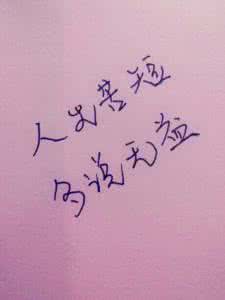 人生苦短
多说无益